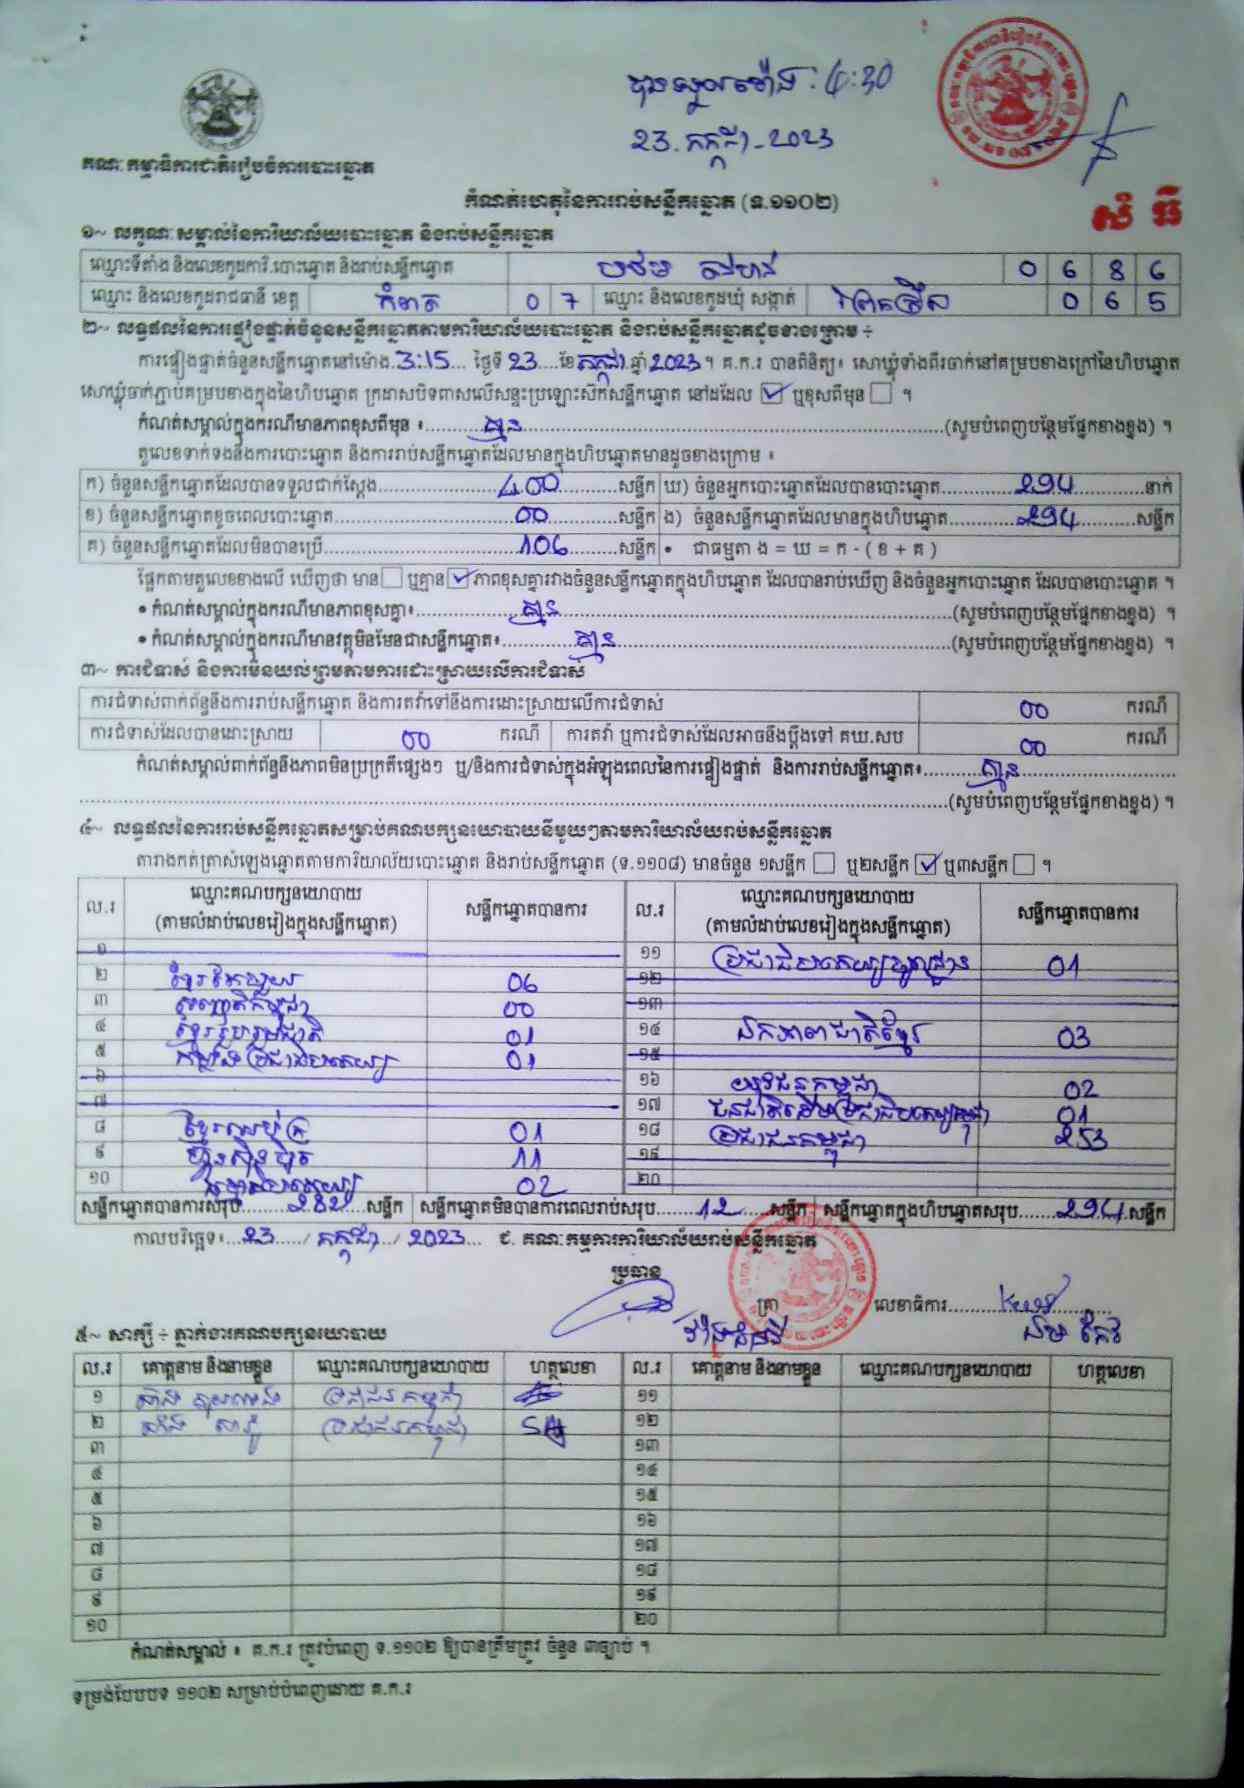 បានទទួលម៉ោង : 4:30
23. កក្កដា - 2023
គណៈកម្មាធិការជាតិរៀបចំការបោះឆ្នោត
កំណត់ហេតុនៃការរាប់សន្លឹកឆ្នោត (ទ.១១០២)
១~ លក្ខណៈសម្គាល់នៃការិយាល័យបោះឆ្នោត និងរាប់សន្លឹកឆ្នោត
ឈ្មោះទីតាំង និងលេខកូដការិ.បោះឆ្នោត និងរាប់សន្លឹកឆ្នោត 0 6 8 6
ឈ្មោះ និងលេខកូដរាជធានី ខេត្ត កំពត 0 7 ឈ្មោះ និងលេខកូដឃុំ សង្កាត់ 0 6 5
២~ លទ្ធផលនៃការផ្ទៀងផ្ទាត់ចំនួនសន្លឹកឆ្នោតតាមការិយាល័យបោះឆ្នោត និងរាប់សន្លឹកឆ្នោតដូចខាងក្រោម ÷
ការផ្ទៀងផ្ទាត់ចំនួនសន្លឹកឆ្នោតនៅម៉ោង 3:15 ថ្ងៃទី 23 ខែ កក្កដា ឆ្នាំ 2023 ។ គ.ក.រ បានពិនិត្យ៖ សោឃ្លុំទាំងពីរចាក់នៅគម្របខាងក្រៅនៃហិបឆ្នោត
សោឃ្លុំចាក់ភ្ជាប់គម្របខាងក្នុងនៃហិបឆ្នោត ក្រដាសបិទពាសលើសន្ទះប្រឡោះស៊កសន្លឹកឆ្នោត នៅដដែល ☑ ឬខុសពីមុន ☐ ។
កំណត់សម្គាល់ក្នុងករណីមានភាពខុសពីមុន ៖ គ្មាន (សូមបំពេញបន្ថែមផ្នែកខាងខ្នង) ។
តួលេខទាក់ទងនឹងការបោះឆ្នោត និងការរាប់សន្លឹកឆ្នោតដែលមានក្នុងហិបឆ្នោតមានដូចខាងក្រោម ៖
ក) ចំនួនសន្លឹកឆ្នោតដែលបានទទួលជាក់ស្តែង 400 សន្លឹក ឃ) ចំនួនអ្នកបោះឆ្នោតដែលបានបោះឆ្នោត 294 នាក់
ខ) ចំនួនសន្លឹកឆ្នោតខូចពេលបោះឆ្នោត 00 សន្លឹក ង) ចំនួនសន្លឹកឆ្នោតដែលមានក្នុងហិបឆ្នោត 294 សន្លឹក
គ) ចំនួនសន្លឹកឆ្នោតដែលមិនបានប្រើ 106 សន្លឹក • ជាធម្មតា ង = ឃ = ក - ( ខ + គ )
ផ្អែកតាមតួលេខខាងលើ ឃើញថា មាន ☐ ឬគ្មាន ☑ ភាពខុសគ្នារវាងចំនួនសន្លឹកឆ្នោតក្នុងហិបឆ្នោត ដែលបានរាប់ឃើញ និងចំនួនអ្នកបោះឆ្នោត ដែលបានបោះឆ្នោត ។
• កំណត់សម្គាល់ក្នុងករណីមានភាពខុសគ្នា៖ គ្មាន (សូមបំពេញបន្ថែមផ្នែកខាងខ្នង) ។
• កំណត់សម្គាល់ក្នុងករណីមានវត្ថុមិនមែនជាសន្លឹកឆ្នោត៖ គ្មាន (សូមបំពេញបន្ថែមផ្នែកខាងខ្នង) ។
៣~ ការជំទាស់ និងការមិនយល់ព្រមតាមការដោះស្រាយលើការជំទាស់
ការជំទាស់ពាក់ព័ន្ធនឹងការរាប់សន្លឹកឆ្នោត និងការតវ៉ាទៅនឹងការដោះស្រាយលើការជំទាស់ 00 ករណី
ការជំទាស់ដែលបានដោះស្រាយ 00 ករណី ការតវ៉ា ឬការជំទាស់ដែលអាចនឹងប្តឹងទៅ គឃ.សប 00 ករណី
កំណត់សម្គាល់ពាក់ព័ន្ធនឹងភាពមិនប្រក្រតីផ្សេងៗ ឬ/និងការជំទាស់ក្នុងអំឡុងពេលនៃការផ្ទៀងផ្ទាត់ និងការរាប់សន្លឹកឆ្នោត៖ គ្មាន
(សូមបំពេញបន្ថែមផ្នែកខាងខ្នង) ។
៤~ លទ្ធផលនៃការរាប់សន្លឹកឆ្នោតសម្រាប់គណបក្សនយោបាយនីមួយៗតាមការិយាល័យរាប់សន្លឹកឆ្នោត
តារាងកត់ត្រាសំឡេងឆ្នោតតាមការិយាល័យបោះឆ្នោត និងរាប់សន្លឹកឆ្នោត (ទ.១១០៨) មានចំនួន ១សន្លឹក ☐ ឬ២សន្លឹក ☑ ឬ៣សន្លឹក ☐ ។
ល.រ ឈ្មោះគណបក្សនយោបាយ (តាមលំដាប់លេខរៀងក្នុងសន្លឹកឆ្នោត) សន្លឹកឆ្នោតបានការ ល.រ ឈ្មោះគណបក្សនយោបាយ (តាមលំដាប់លេខរៀងក្នុងសន្លឹកឆ្នោត) សន្លឹកឆ្នោតបានការ
១ ១១ ប្រជាធិបតេយ្យមូលដ្ឋាន 01
២ ខ្មែរតែមួយ 06 ១២
៣ មាតុភូមិ 00 ១៣
៤ ខ្មែររួបរួមជាតិ 01 ១៤ ឯកភាពជាតិខ្មែរ 03
៥ កម្លាំងប្រជាធិបតេយ្យ 01 ១៥
៦ ១៦ យុវជនកម្ពុជា 02
៧ ១៧ ជនជាតិដើមប្រជាធិបតេយ្យកម្ពុជា 01
៨ ខ្មែរឈប់ក្រ 01 ១៨ ប្រជាជនកម្ពុជា 253
៩ ហ៊្វុនស៊ិនប៉ិច 11 ១៩
១០ ធម្មាធិបតេយ្យ 02 ២០
សន្លឹកឆ្នោតបានការសរុប 282 សន្លឹក សន្លឹកឆ្នោតមិនបានការពេលរាប់សរុប 12 សន្លឹក សន្លឹកឆ្នោតក្នុងហិបឆ្នោតសរុប 294 សន្លឹក
កាលបរិច្ឆេទ៖ 23 / កក្កដា / 2023 ជ. គណៈកម្មការការិយាល័យរាប់សន្លឹកឆ្នោត
ប្រធាន
ត្រា លេខាធិការ
៥~ សាក្សី ÷ ភ្នាក់ងារគណបក្សនយោបាយ
ល.រ គោត្តនាម និងនាមខ្លួន ឈ្មោះគណបក្សនយោបាយ ហត្ថលេខា ល.រ គោត្តនាម និងនាមខ្លួន ឈ្មោះគណបក្សនយោបាយ ហត្ថលេខា
១ ប្រជាជនកម្ពុជា ១១
២ ប្រជាជនកម្ពុជា ១២
៣ ១៣
៤ ១៤
៥ ១៥
៦ ១៦
៧ ១៧
៨ ១៨
៩ ១៩
១០ ២០
កំណត់សម្គាល់ ៖ គ.ក.រ ត្រូវបំពេញ ទ.១១០២ ឱ្យបានត្រឹមត្រូវ ចំនួន ៣ច្បាប់ ។
ទម្រង់បែបបទ ១១០២ សម្រាប់បំពេញដោយ គ.ក.រ